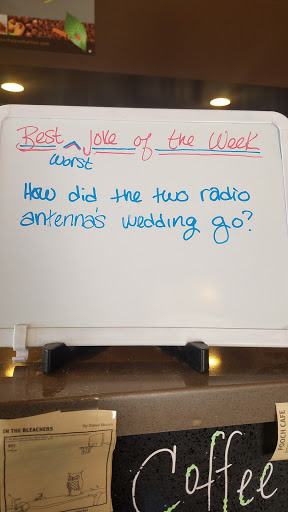 Best ^ Joke of the Week
worst
How did the two radio
antenna's wedding go?
IN THE BLEACHERS
POOCH CAFE
Coffee